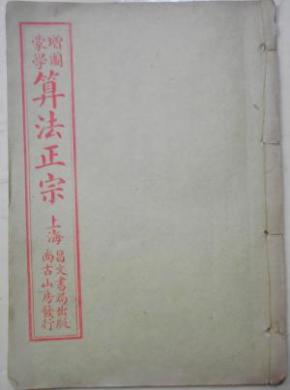 增圖
蒙學
算法正宗
上海
昌文書局出版
尚古山房發行